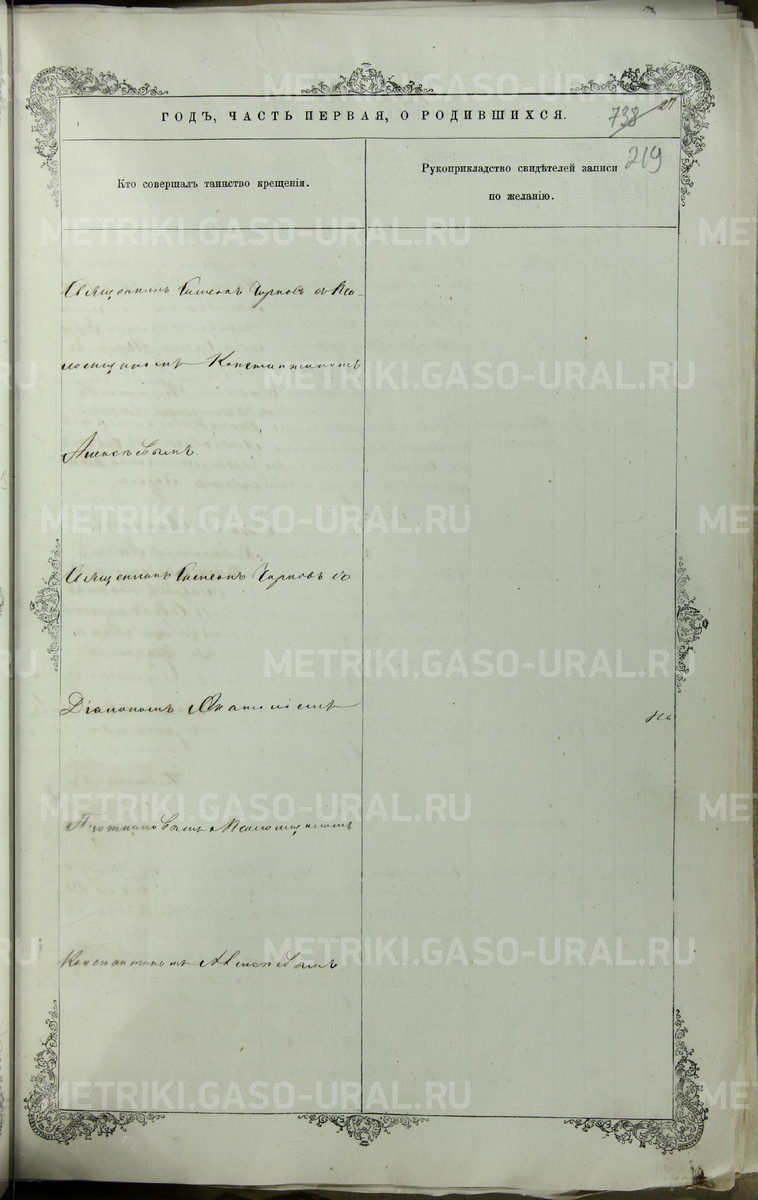 ГОДЪ, ЧАСТЬ ПЕРВАЯ, О РОДИВШИХСЯ.
738 27
219
Кто совершалъ таинство крещенія.
Рукоприкладство свидѣтелей записи
по желанію.
Священникъ Симеонъ Чирковъ съ Пса-
ломщикомъ Константиномъ
Алексѣевымъ
Священникъ Симеонъ Чирковъ съ
Діакономъ
Псаломщикомъ
Константиномъ Алексѣевымъ
METRIKI.GASO-URAL.RU